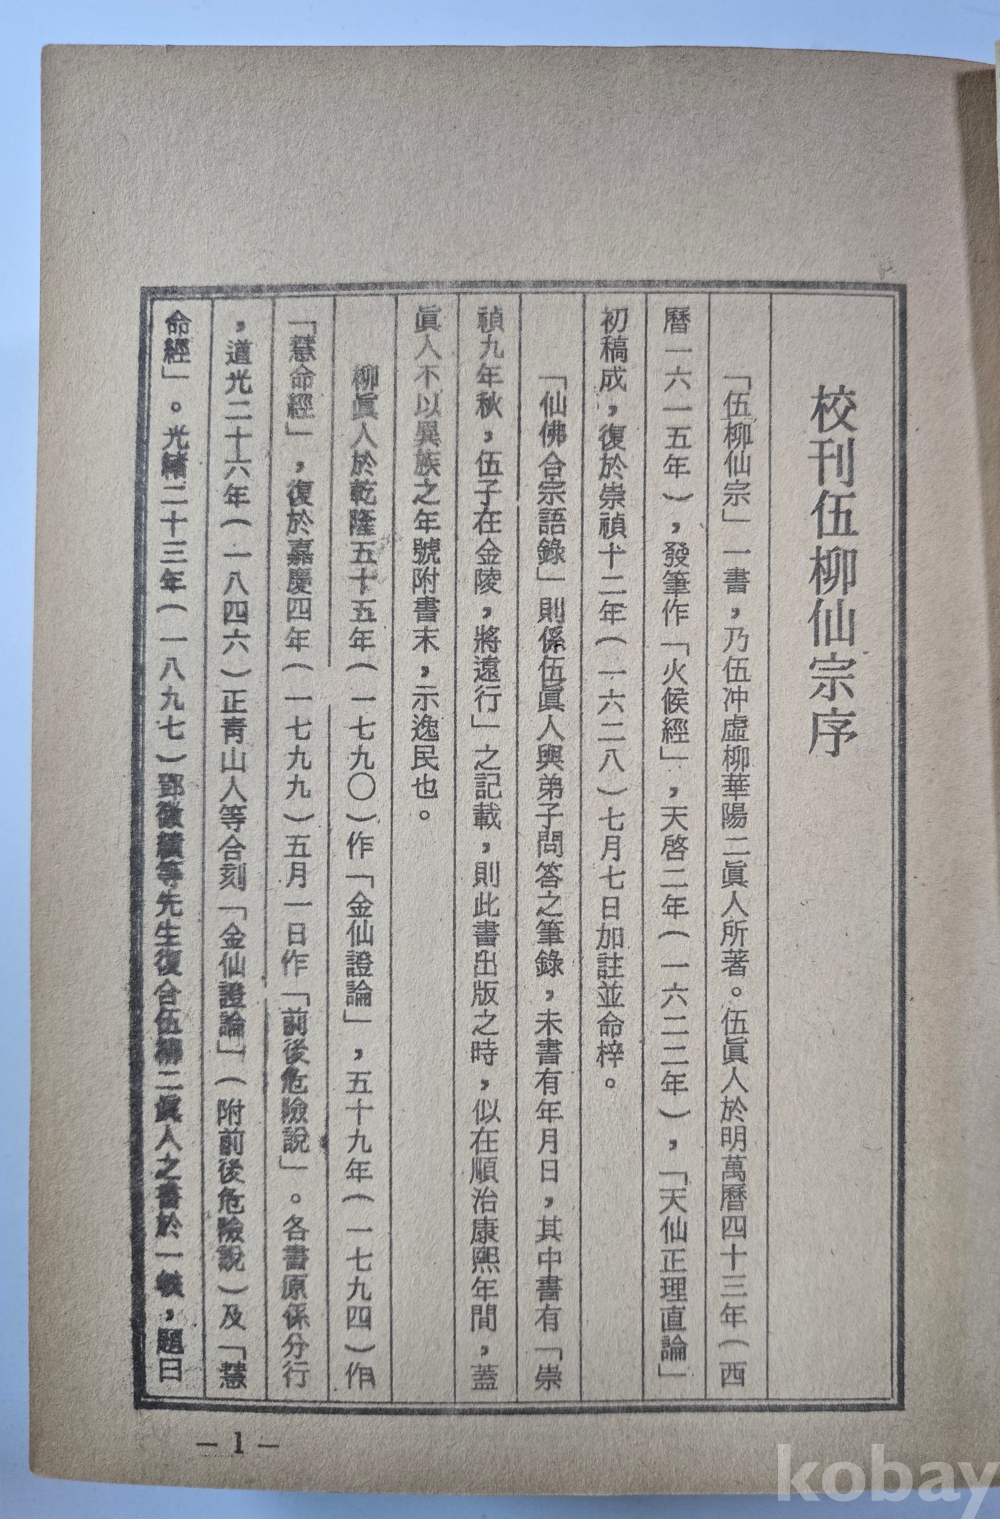 校刊伍柳仙宗序
「伍柳仙宗」一書，乃伍冲虛柳華陽二眞人所著。伍眞人於明萬曆四十三年（西
曆一六一五年），發筆作「火候經」，天啓二年（一六二二年），「天仙正理直論」
初稿成，復於崇禎十二年（一六二八）七月七日加註並命梓。
「仙佛合宗語錄」則係伍眞人與弟子問答之筆錄，未書有年月日，其中書有「崇
禎九年秋，伍子在金陵，將遠行」之記載，則此書出版之時，似在順治康熙年間，蓋
眞人不以異族之年號附書末，示逸民也。
柳眞人於乾隆五十五年（一七九〇）作「金仙證論」，五十九年（一七九四）作
「慧命經」，復於嘉慶四年（一七九九）五月一日作「前後危險說」。各書原係分行
，道光二十六年（一八四六）正靑山人等合刻「金仙證論」（附前後危險說）及「慧
命經」。光緖二十三年（一八九七）鄧徽績等先生復合伍柳二眞人之書於一帙，題曰
－1－
kobay